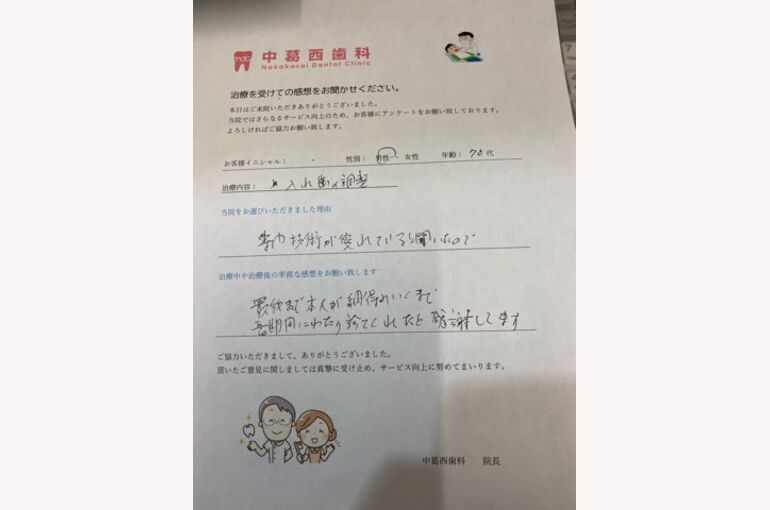 中葛西歯科
Nakakasai Dental Clinic
治療を受けての感想をお聞かせください。
本日はご来院いただきありがとうございました。
当院ではさらなるサービス向上のため、お客様にアンケートをお願い致しております。
よろしければご協力お願い致します。
お客様イニシャル： 性別： 男性・女性 年齢：70代
治療内容： 入れ歯の調整
当院をお選びいただきました理由
専門技術が優れていると聞いたので
治療中や治療後の率直な感想をお願い致します
最後まで本人が納得のいくまで
長期間にわたり診てくれたと感謝してます
ご協力いただきまして、ありがとうございました。
頂いたご意見に関しましては真摯に受け止め、サービス向上に努めてまいります。
中葛西歯科 院長